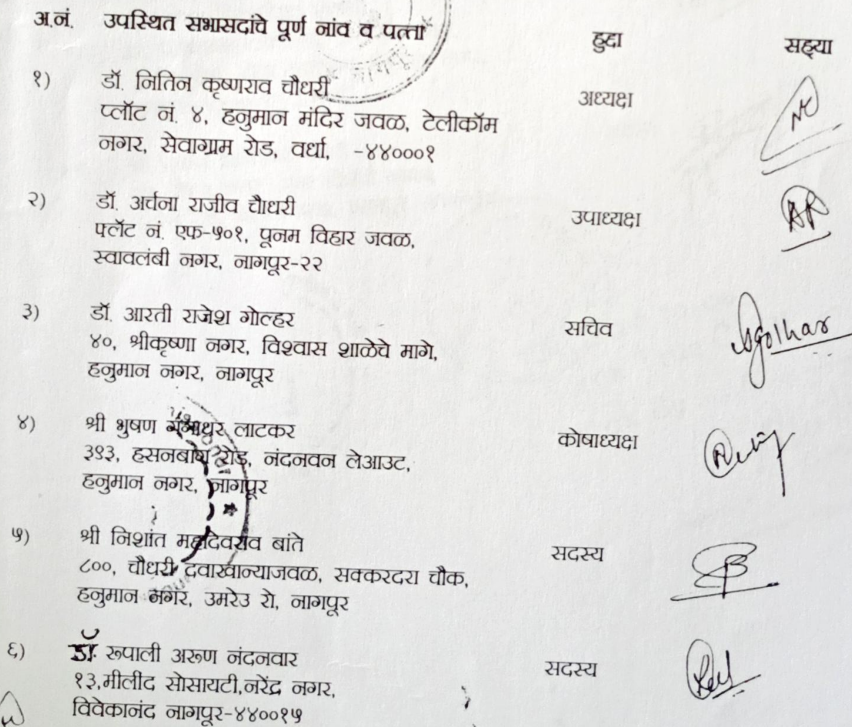 अ.नं. उपस्थित सभासदांचे पूर्ण नांव व पत्ता हुद्दा सह्या
१) डॉ. नितिन कृष्णराव चौधरी अध्यक्ष
प्लॉट नं. ४, हनुमान मंदिर जवळ, टेलीकॉम
नगर, सेवाग्राम रोड, वर्धा, -४४०००१
२) डॉ. अर्चना राजीव चौधरी उपाध्यक्ष
फ्लॅट नं. एफ-५०१, पूनम विहार जवळ,
स्वावलंबी नगर, नागपूर-२२
३) डॉ. आरती राजेश गोल्हर सचिव
४०, श्रीकृष्णा नगर, विश्वास शाळेचे मागे,
हनुमान नगर, नागपूर
४) श्री भुषण गंगाधर लाटकर कोषाध्यक्ष
३९३, हसनबाग रोड, नंदनवन लेआउट,
हनुमान नगर, नागपूर
५) श्री निशांत महादेवराव बांते सदस्य
८००, चौधरी दवाखान्याजवळ, सक्करदरा चौक,
हनुमान नगर, उमरेउ रो, नागपूर
६) डॉ. रूपाली अरूण नंदनवार सदस्य
१३,मीलीद सोसायटी,नरेंद्र नगर,
विवेकानंद नागपूर-४४००१५